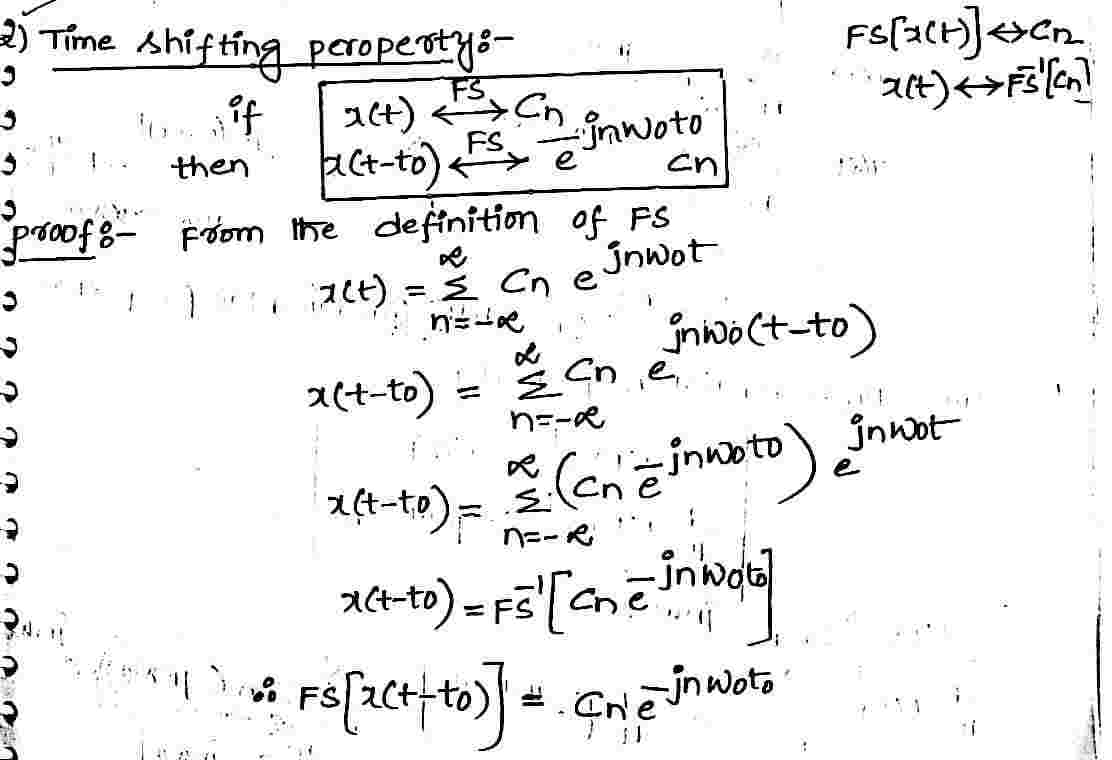 2) Time shifting peroperty:-
FS[x(t)] ↔ Cn
x(t) ↔ FS⁻¹[Cn]
if x(t) ←FS→ Cn
then x(t-t0) ←FS→ e^-jnw0t0 Cn
proof:- From the definition of FS
x(t) = Σ_{n=-∞}^{∞} Cn e^jnw0t
x(t-t0) = Σ_{n=-∞}^{∞} Cn e^jnw0(t-t0)
x(t-t0) = Σ_{n=-∞}^{∞} (Cn e^-jnw0t0) e^jnw0t
x(t-t0) = FS⁻¹[Cn e^-jnw0t0]
∴ FS[x(t-t0)] = Cn e^-jnw0t0